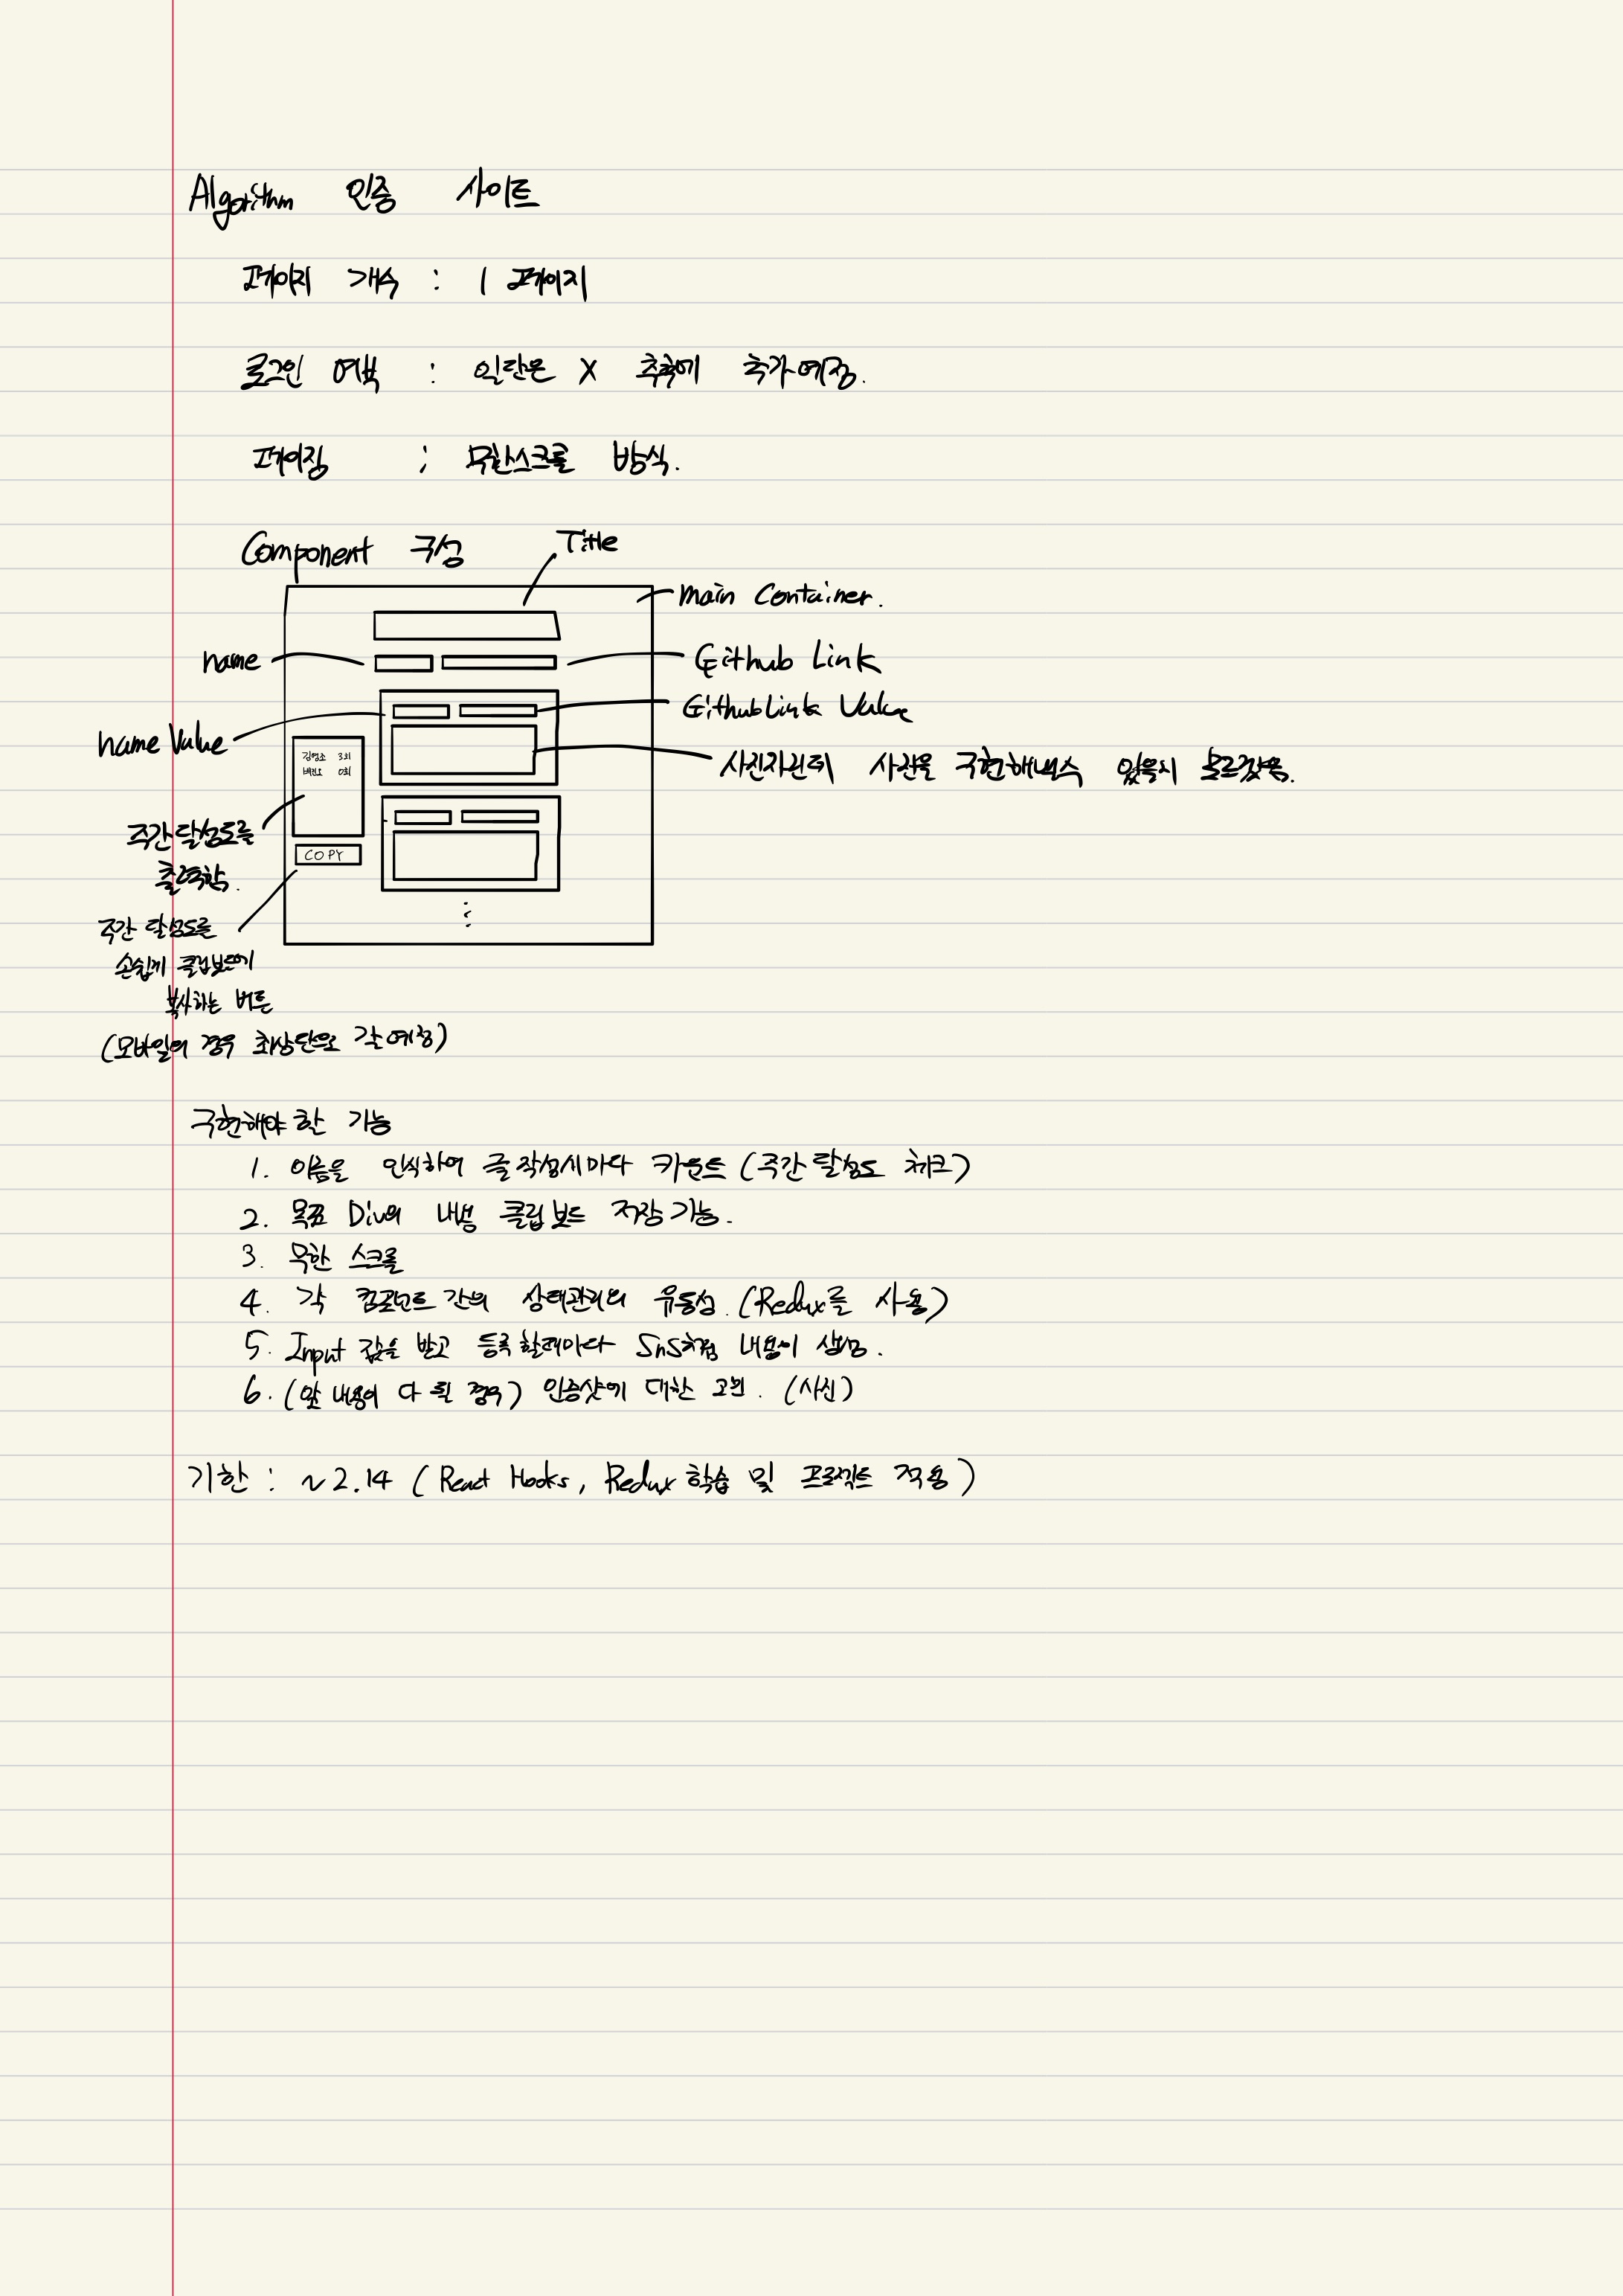 Algorithm 인증 사이트
페이지 개수 : 1 페이지
로그인 여부 : 일단은 X 추후에 추가예정.
페이징 : 무한스크롤 방식.
Component 구성
Title
Main Container.
name
Github Link
GithubLink Value
name Value
사진자리인데 사진을 구현해낼수 있을지 모르겠음.
3회
0회
주간달성도를
출력함.
COPY
주간 달성도를
손쉽게 클립보드에
복사하는 버튼
(모바일의 경우 최상단으로 갈 예정)
구현해야 할 기능
1. 이름을 인식하여 글 작성시마다 카운트 (주간달성도 체크)
2. 목표 Div의 내용 클립보드 저장 기능.
3. 무한 스크롤
4. 각 컴포넌트 간의 상태관리의 유동성. (Redux를 사용)
5. Input 값을 받고 등록할때마다 SnS처럼 내용이 생성.
6. (앞 내용이 다 될 경우) 인증샷에 대한 고민. (사진)
기한 : ~2.14 (React Hooks, Redux 학습 및 프로젝트 적용)